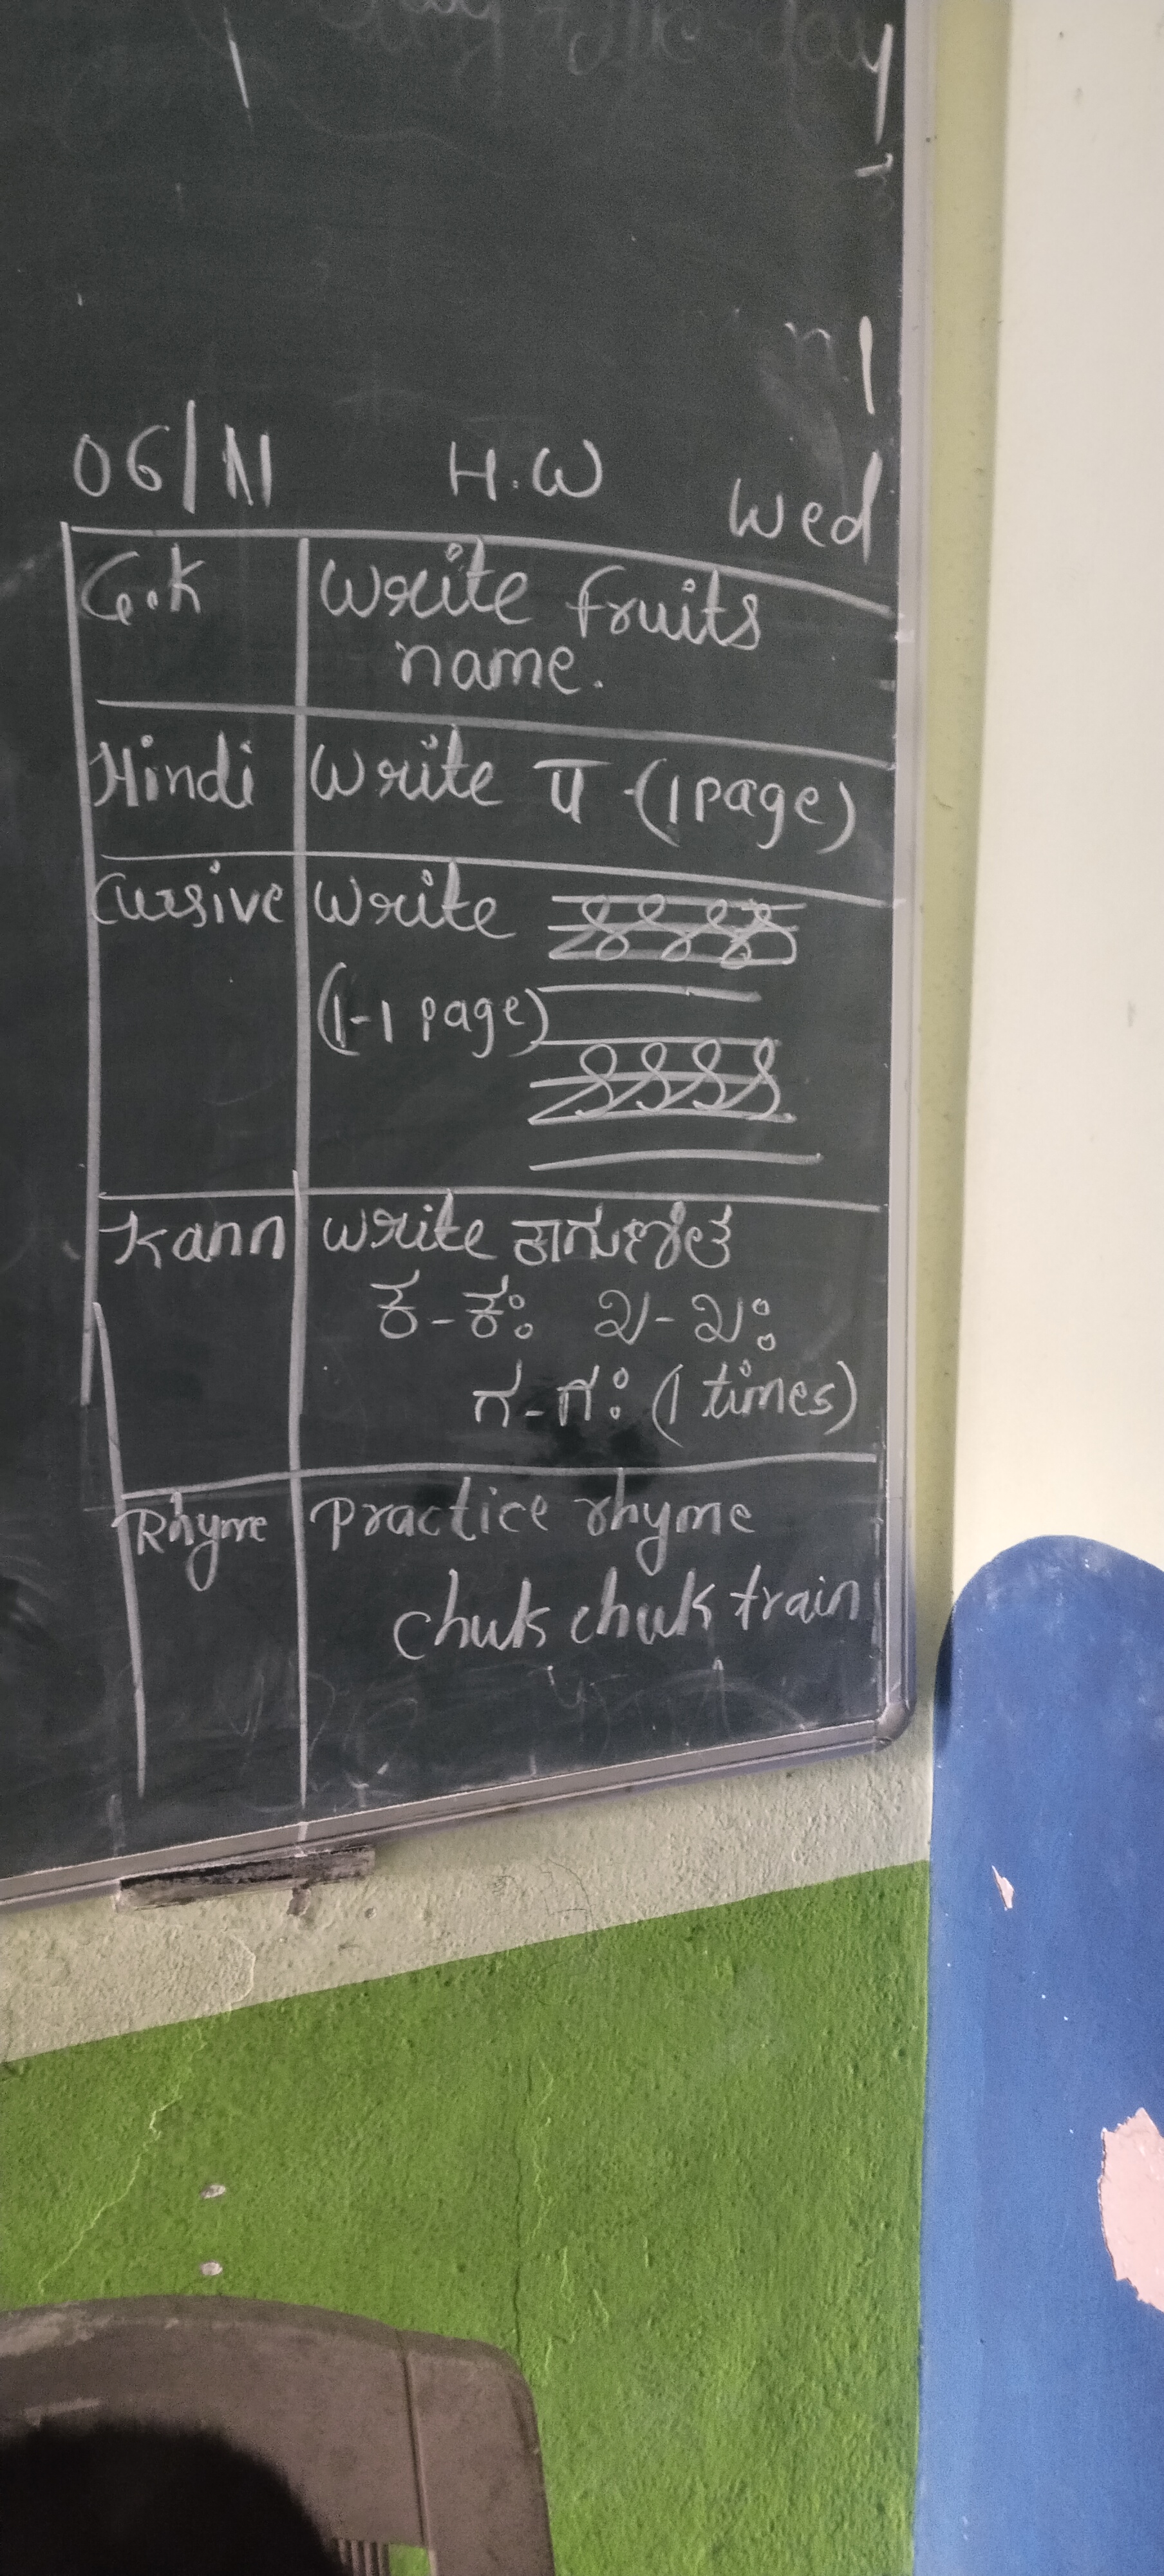 06/11 H.W Wed
G.K Write fruits
name.
Hindi Write प (1 page)
Cursive Write
(1-1 page)
Kann write ಕಾಗುಣಿತ
ಕ-ಕಃ ಖ-ಖಃ
ಗ-ಗಃ (1 times)
Rhyme Practice rhyme
chuk chuk train